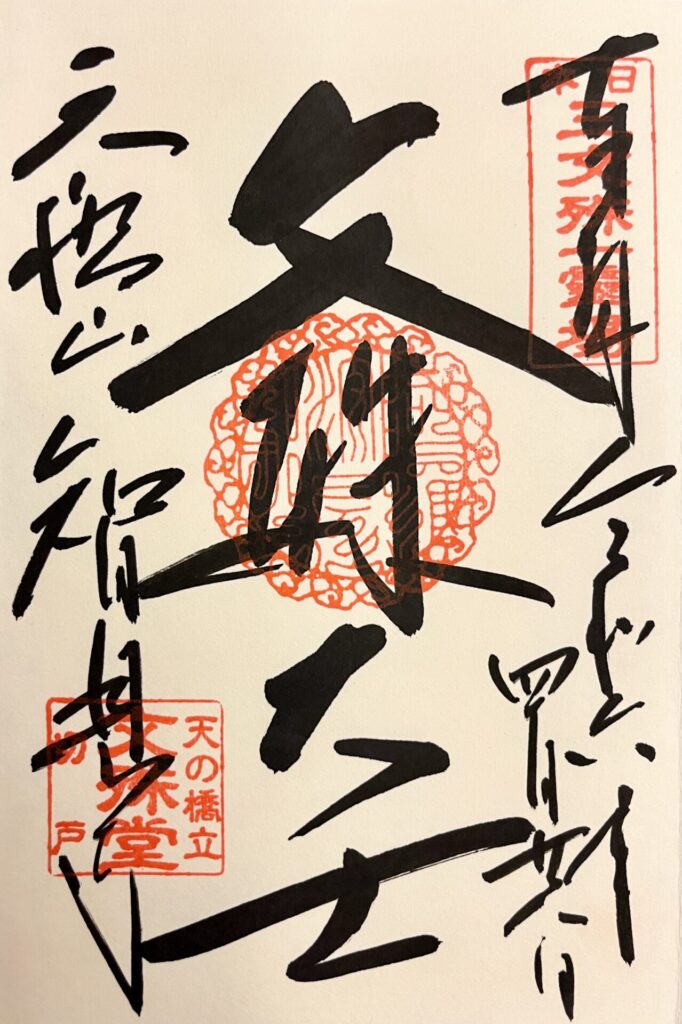 奉拝
令和六年
四月
日本
三文殊一霊場
文殊大士
天橋山
智恩寺
天の橋立
文殊堂
切戸